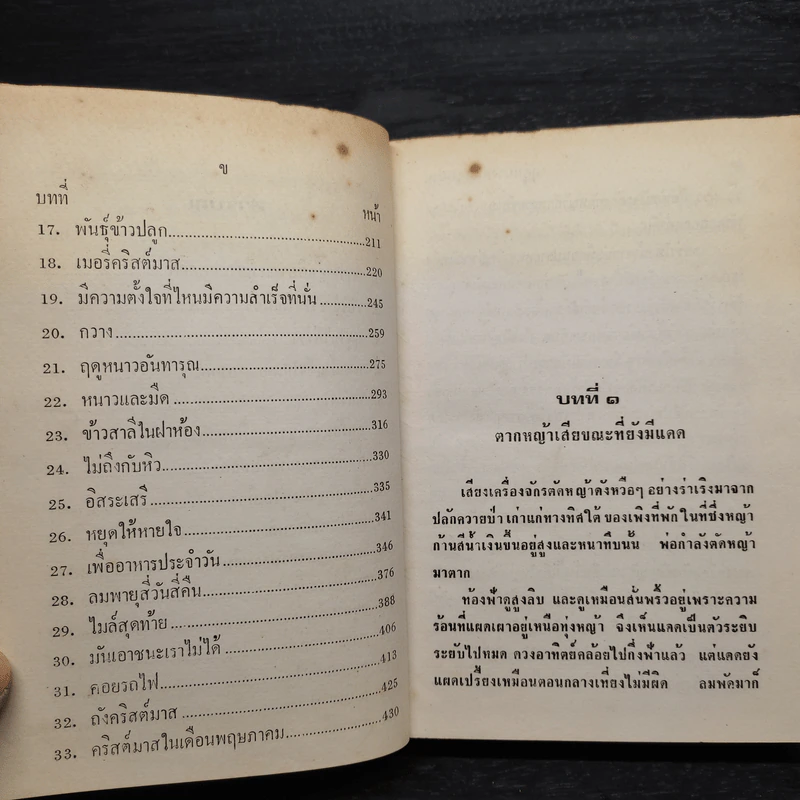 ข
บทที่
หน้า
17. พันธุ์ข้าวปลูก 211
18. เมอรี่คริสต์มาส 220
19. มีความตั้งใจที่ไหนมีความสำเร็จที่นั่น 245
20. กวาง 259
21. ฤดูหนาวอันทารุณ 275
22. หนาวและมืด 293
23. ข้าวสาลีในฝาห้อง 316
24. ไม่ถึงกับหิว 330
25. อิสระเสรี 335
26. หยุดให้หายใจ 341
27. เพื่ออาหารประจำวัน 346
28. ลมพายุสี่วันสี่คืน 376
29. ไมล์สุดท้าย 388
30. มันเอาชนะเราไม่ได้ 406
31. คอยรถไฟ 413
32. ถังคริสต์มาส 425
33. คริสต์มาสในเดือนพฤษภาคม 430
บทที่ ๑
ตากหญ้าเสียขณะที่ยังมีแดด
เสียงเครื่องจักรตัดหญ้าดังหวือๆ อย่างร่าเริงมาจาก
ปลักควายป่า เก่าแก่ทางทิศใต้ ของเพิงที่พัก ในที่ซึ่งหญ้า
ก้านสีน้ำเงินขึ้นอยู่สูงและหนาทึบนั้น พ่อกำลังตัดหญ้า
มาตาก
ท้องฟ้าดูสูงลิบ และดูเหมือนสั่นพริ้วอยู่เพราะความ
ร้อนที่แผดเผาอยู่เหนือทุ่งหญ้า จึงเห็นแดดเป็นตัวระยิบ
ระยับไปหมด ดวงอาทิตย์คล้อยไปกึ่งฟ้าแล้ว แต่แดดยัง
แผดเปรี้ยงเหมือนตอนกลางเที่ยงไม่มีผิด ลมพัดมาก็